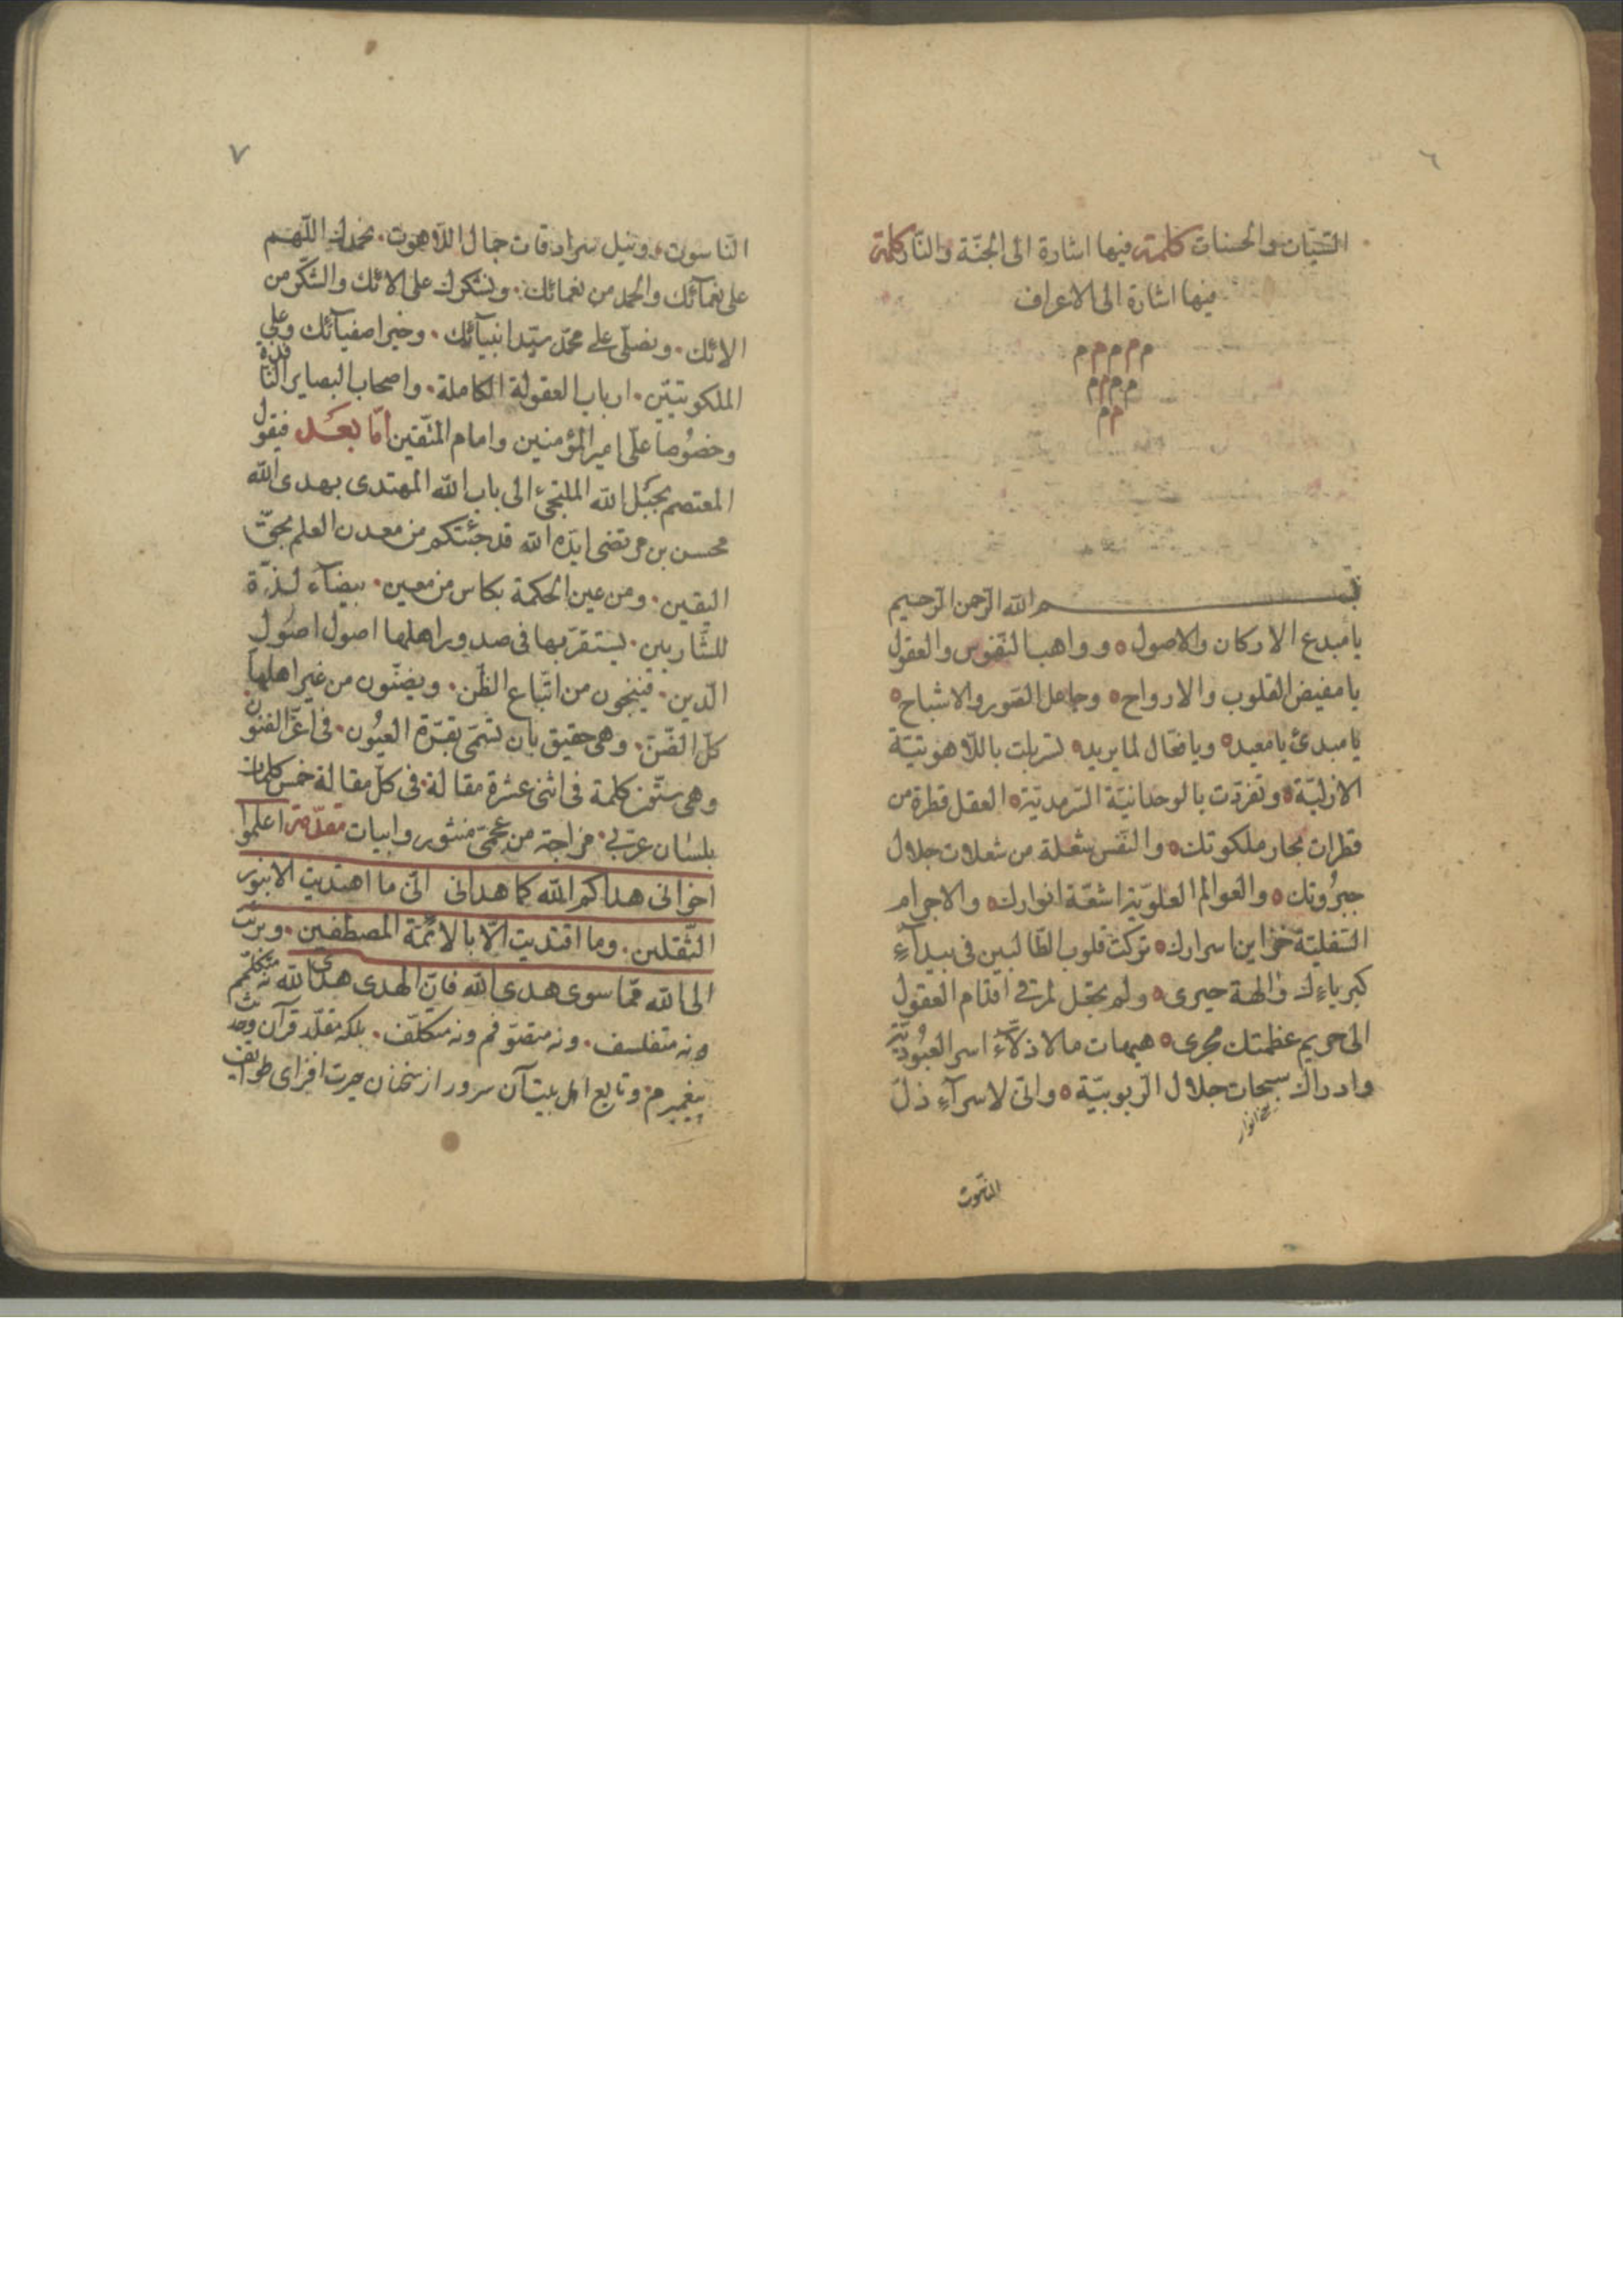 ٦
السّيّئات والحسنات كلمة فيها اشارة الى الجنّة والنّار كلمة
فيها اشارة الى الاعراف
م م م م م
م م م م
م م
بسم الله الرّحمن الرّحيم
يا مبدع الاركان والاصول ٥ و واهب النّفوس والعقول
يا مفيض القلوب والارواح ٥ وجاعل الصّور والاشباح ٥
يا مبدئ يا معيد ٥ ويا فعّال لما يريد ٥ تسربلت باللّاهوتيّة
الازليّة ٥ وتفرّدت بالوحدانيّة السّرمديّة ٥ العقل قطرة من
قطرات بحار ملكوتك ٥ والنّفس شعلة من شعلات جلال
جبروتك ٥ والعوالم العلويّة اشعّة انوارك ٥ والاجرام
السّفليّة خزاين اسرارك ٥ تركت قلوب الطّالبين فى بيدآءِ
كبرياءِك والهة حيرى ٥ ولم يجعل لمرقى اقدام العقول
الى حريم عظمتك مجرى ٥ هيهات ما لاذلّاءِ اسر العبوديّة
وادراك سبحات جلال الرّبوبيّة ٥ وانّى لاسرآءِ ذلّ
انوار
النّاسوت
٧
النّاسوت ۰ ونيل سرادقات جمال اللّاهوت ۰ نحمدك اللّهم
على نعمآئك والحمد من نعمائك ۰ ونشكرك على الائك والشّكر من
الائك ۰ ونصلّى على محمّد سيّد انبيآئك ۰ وخير اصفيآئك وعلى
الملكوتيّين ۰ ارباب العقولة الكاملة ۰ واصحاب البصاير النّاقدة
وخصُوصا علىّ امير المؤمنين وامام المتّقين امّا بعَد فيقول
المعتصم بحَبل الله الملتجئ الى باب الله المهتدى بهدى الله
محسن بن مرتضى ايّده الله قد جئتكم من معدن العلم بحقّ
اليقين ۰ ومن عين الحكمة بكاس من معين ۰ بيضآء لذّة
للشّاربين ۰ يستقرّ بها فى صدور اهلها اصول اصُول
الدّين ۰ فينجون من اتّباع الظّنّ ۰ ويضنّون من غير اهلها
كلّ الضّنّ ۰ وهى حقيق بان تسمّى بقرّة العيُون ۰ فى اعزّ الفنون
وهى ستّون كلمة فى اثنى عشرة مقالة ۰ فى كلّ مقالة خمس كلمات
بلسان عربىّ ۰ مزاجه من عجمىّ منثور وابيات مقدّمة اعلموا
اخوانى هداكم الله كما هدانى انّى ما اهتديت الا بنور
الثّقلين ۰ وما اقتديت الّا بالائمّة المصطفين ۰ وبرئت
الى الله ممّا سوى هدى الله فانّ الهدى هدى الله نه متكلّمم
ونه متفلسف ۰ ونه متصوّفم ونه متكلّف ۰ بلكه مقلّد قرآن وحديث
پيغمبرم ۰ وتابع اهل بيت آن سرور از سخنان حيرت افزاى طوايف